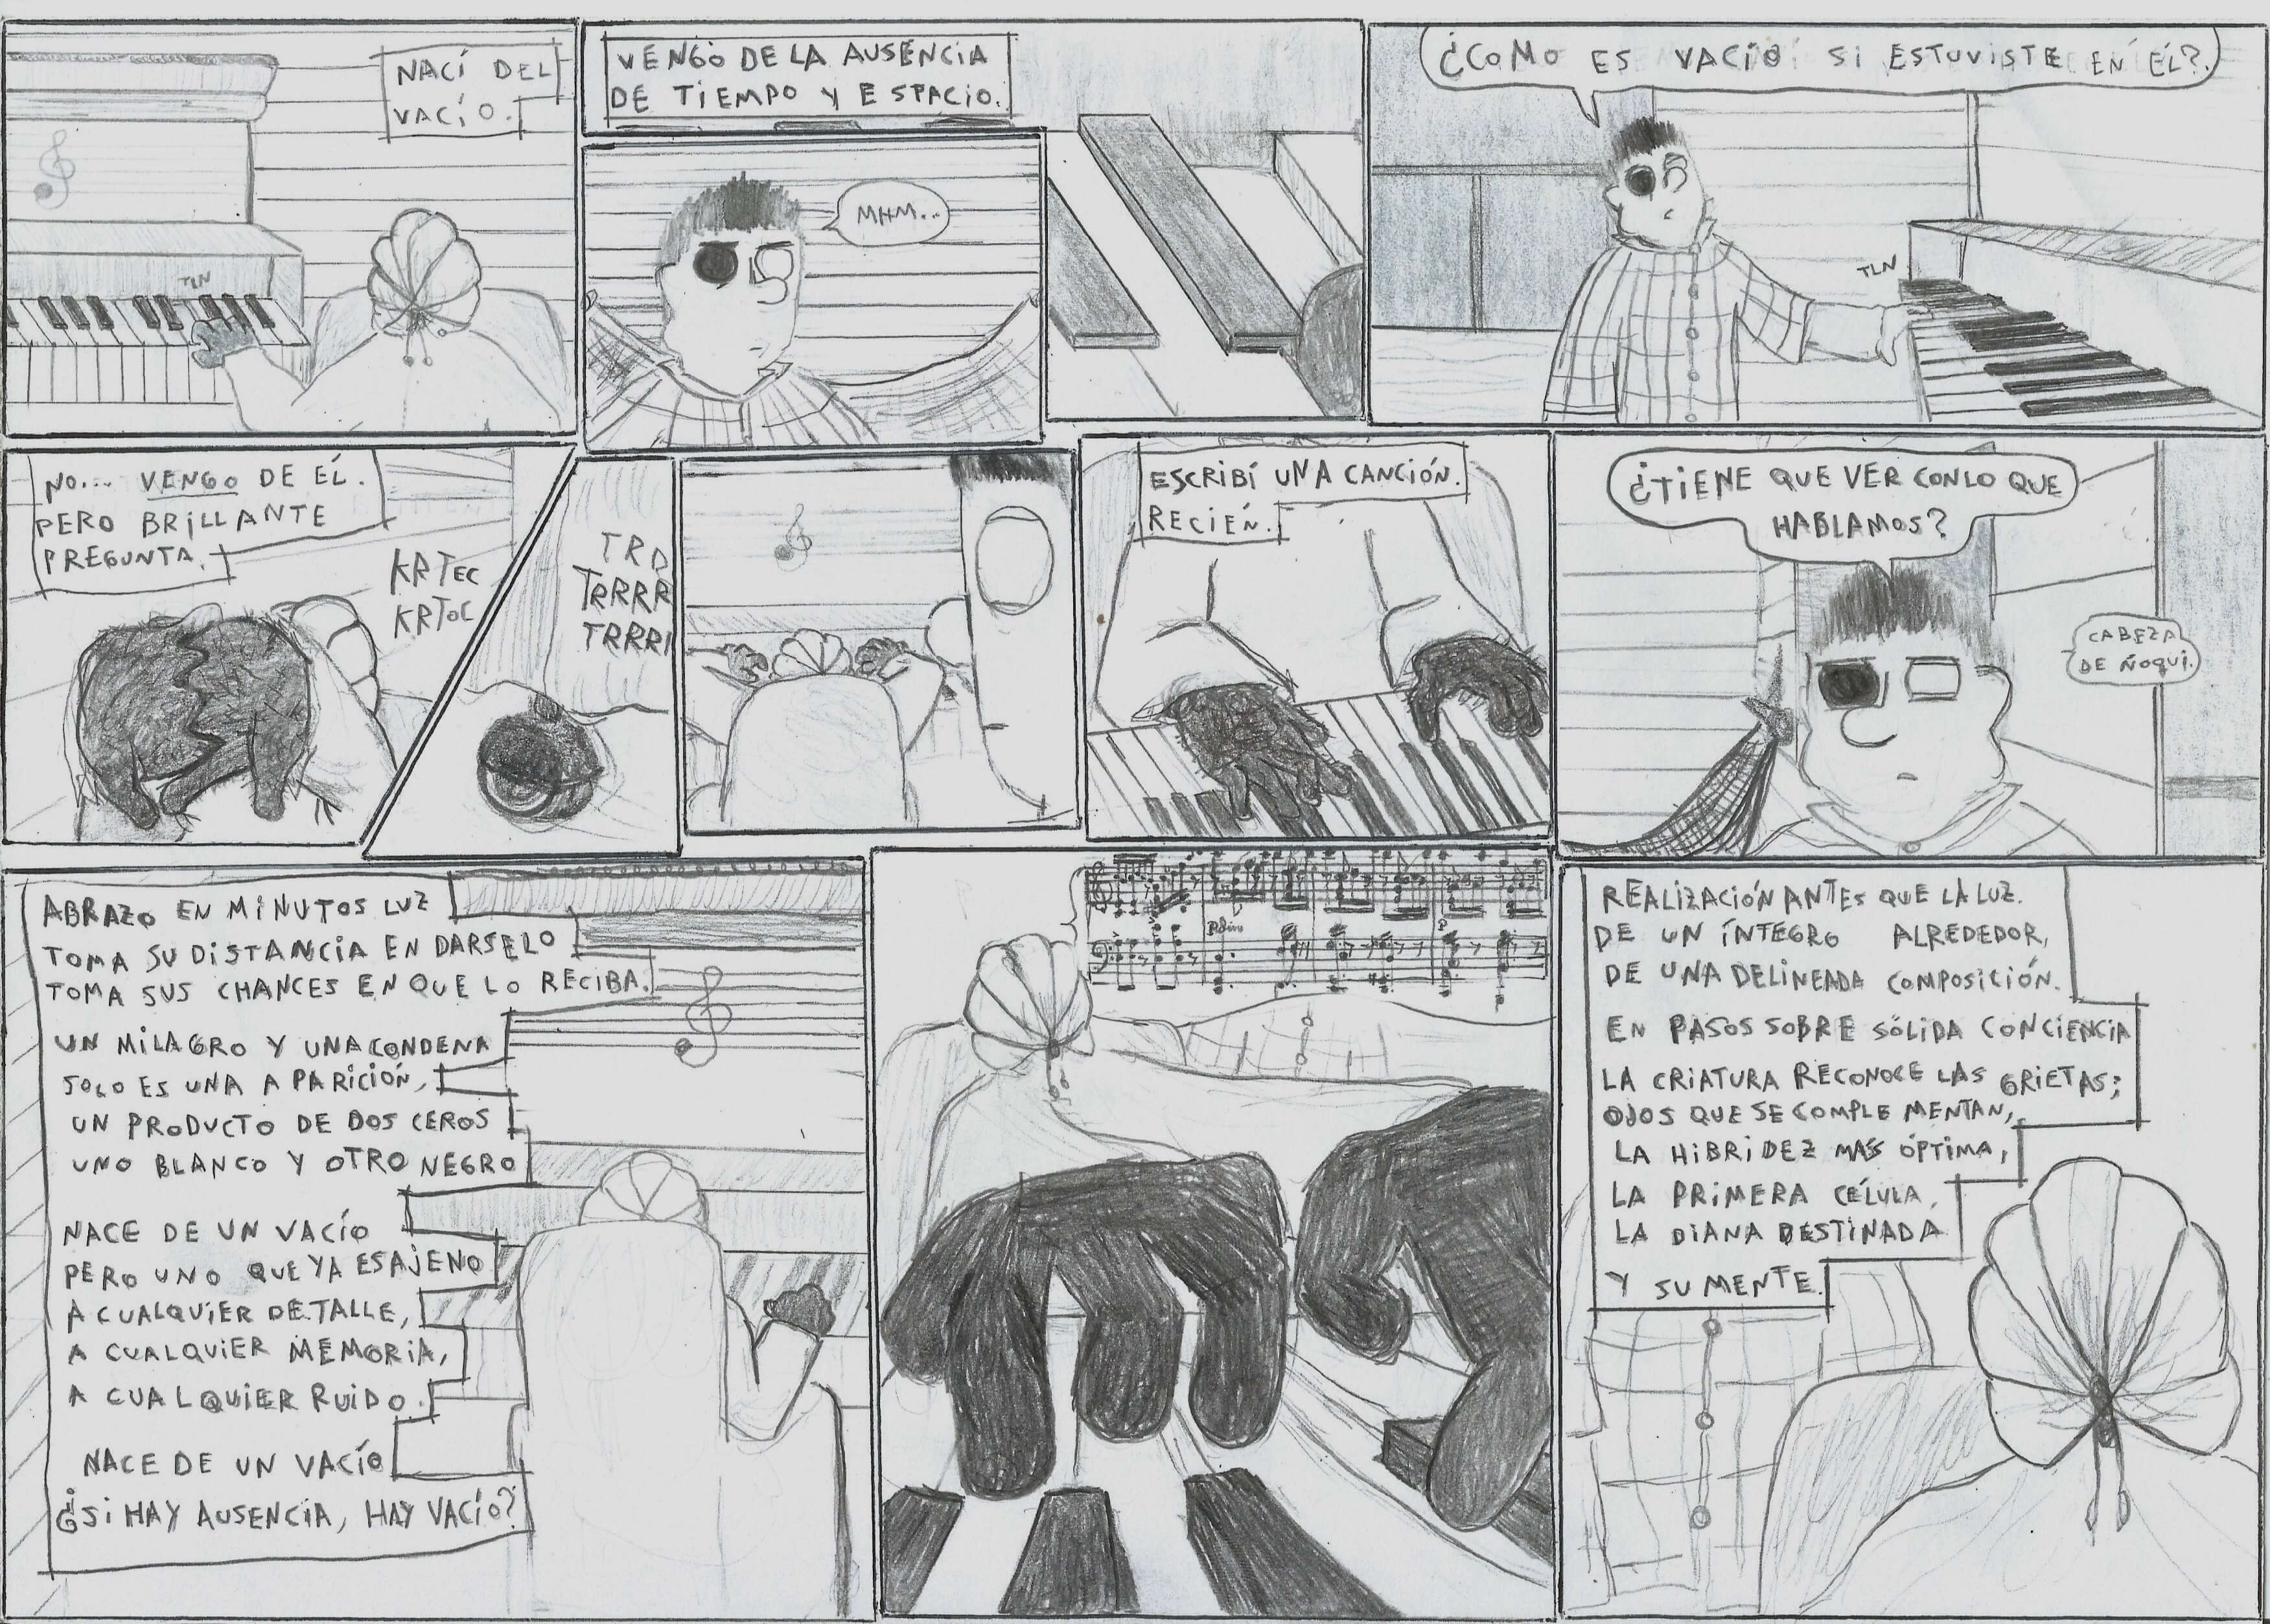 NACÍ DEL
VACÍO.
TLN
VENGO DE LA AUSENCIA
DE TIEMPO Y ESPACIO.
MHM..
¿COMO ES VACÍO SI ESTUVISTE EN ÉL?
TLN
NO... VENGO DE ÉL.
PERO BRILLANTE
PREGUNTA.
KRTEC
KRTOC
TRR
TRRRR
TRRRR
ESCRIBÍ UNA CANCIÓN.
RECIÉN.
¿TIENE QUE VER CON LO QUE
HABLAMOS?
CABEZA
DE ÑOQUI.
ABRAZO EN MINUTOS LUZ
TOMA SU DISTANCIA EN DARSELO
TOMA SUS CHANCES EN QUE LO RECIBA.
UN MILAGRO Y UNA CONDENA
SOLO ES UNA APARICIÓN,
UN PRODUCTO DE DOS CEROS
UNO BLANCO Y OTRO NEGRO
NACE DE UN VACÍO
PERO UNO QUE YA ES AJENO
A CUALQUIER DETALLE,
A CUALQUIER MEMORIA,
A CUALQUIER RUIDO.
NACE DE UN VACÍO
¿SI HAY AUSENCIA, HAY VACÍO?
REALIZACIÓN ANTES QUE LA LUZ.
DE UN ÍNTEGRO ALREDEDOR,
DE UNA DELINEADA COMPOSICIÓN.
EN PASOS SOBRE SÓLIDA CONCIENCIA
LA CRIATURA RECONOCE LAS GRIETAS;
OJOS QUE SE COMPLEMENTAN,
LA HIBRIDEZ MAS ÓPTIMA,
LA PRIMERA CÉLULA,
LA DIANA DESTINADA
Y SU MENTE.